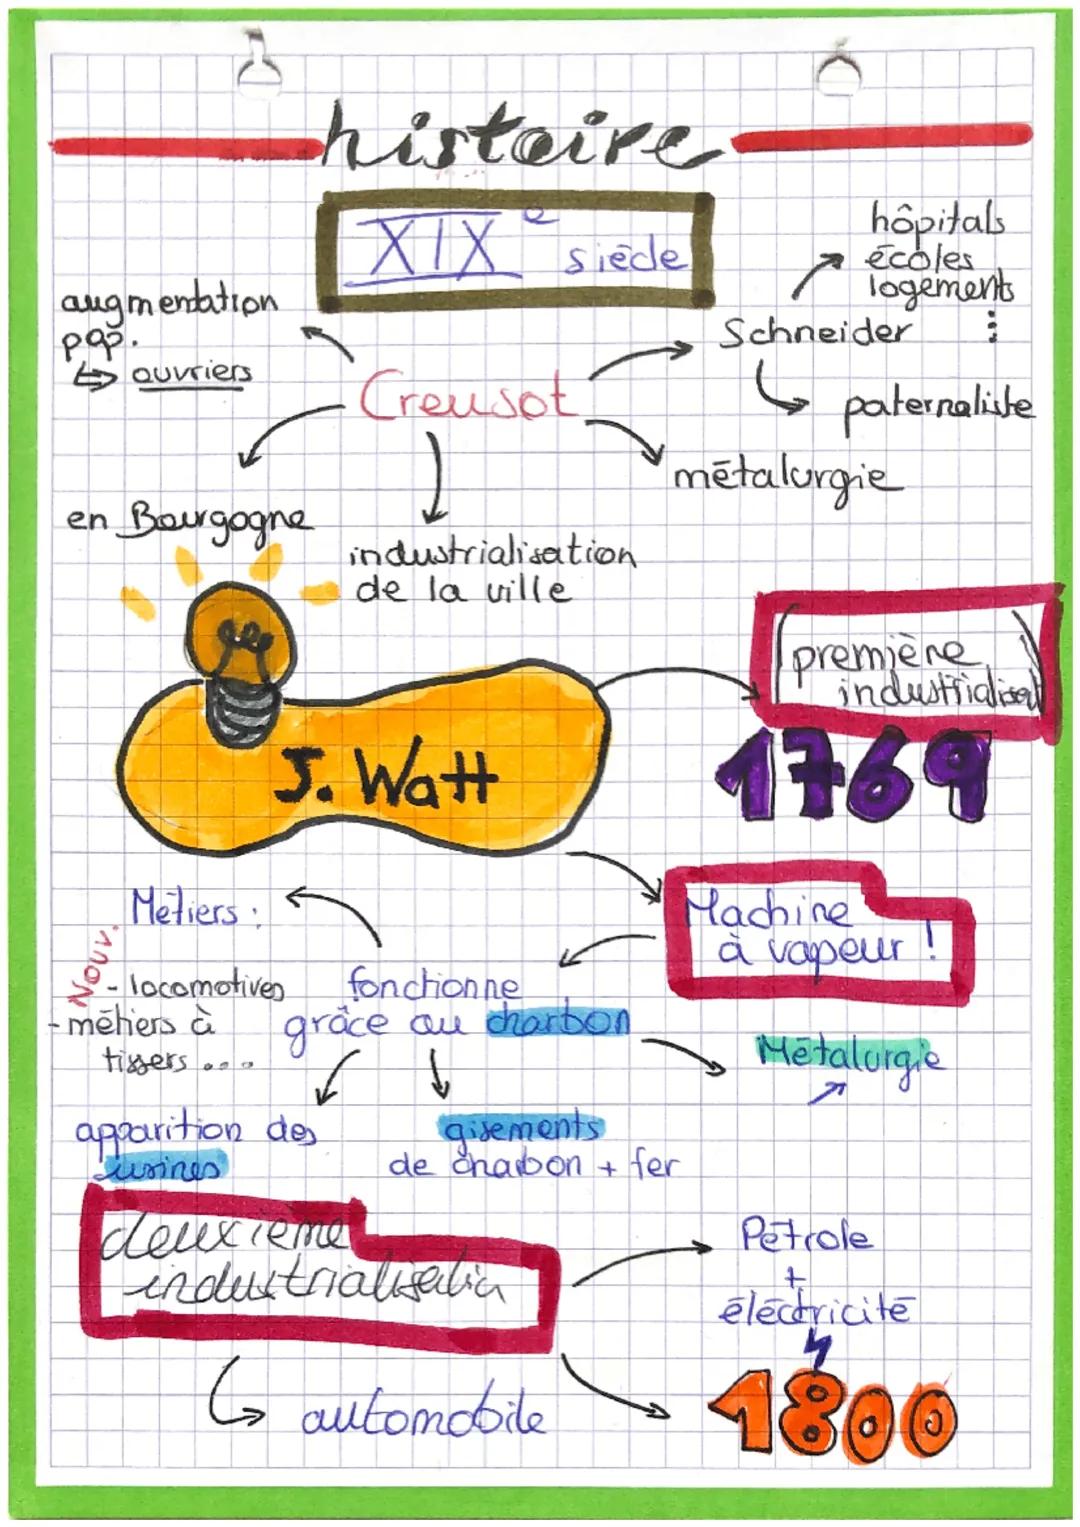 histoire
XIXe siècle
hôpitals
écoles
logements
...
augmentation
pop.
↳ ouvriers
Schneider
Creusot
paternaliste
métalurgie
en Bourgogne
industrialisation
de la ville
(première
industrialisat)
1769
J. Watt
Machine
à vapeur !
Métiers :
Nouv.
- locomotives
- métiers à
tissers ....
fonctionne
grâce au charbon
Métalurgie
apparition des
usines
gisements
de charbon + fer
deuxième
industrialisation
Pétrole
+
éléctricité
automobile
1800